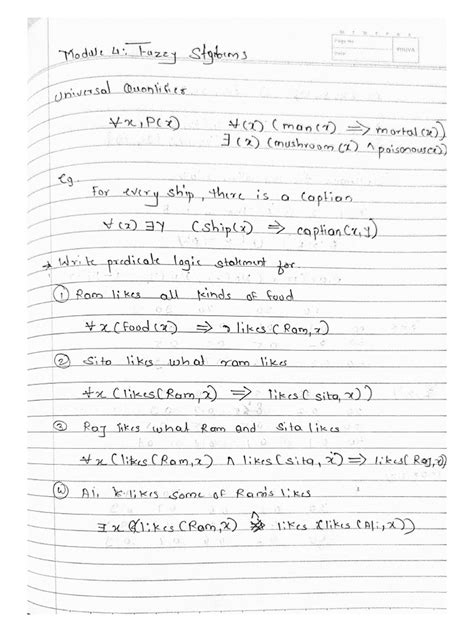 Page No.
Date
YOUVA
Module 4: Fuzzy Systems
Universal Quantifier
∀x, P(x) ∀(x) (man(x) ⇒ mortal(x))
∃(x) (mushroom(x) ∧ poisonous(x))
Eg
For every ship, there is a caption
∀(x) ∃Y (ship(x) ⇒ caption(x,y)
→ Write predicate logic statment for
① Ram likes all kinds of food
∀x (food(x) ⇒ likes (Ram, x)
② Sita likes what ram likes
∀x (likes(Ram, x) ⇒ likes (sita, x))
③ Raj likes what Ram and Sita likes
∀x (likes(Ram, x) ∧ likes(sita, x) ⇒ likes(Raj, x)
④ Ali likes some of Ram's likes
∃x (likes (Ram, x) ∧ likes (likes (Ali, x))